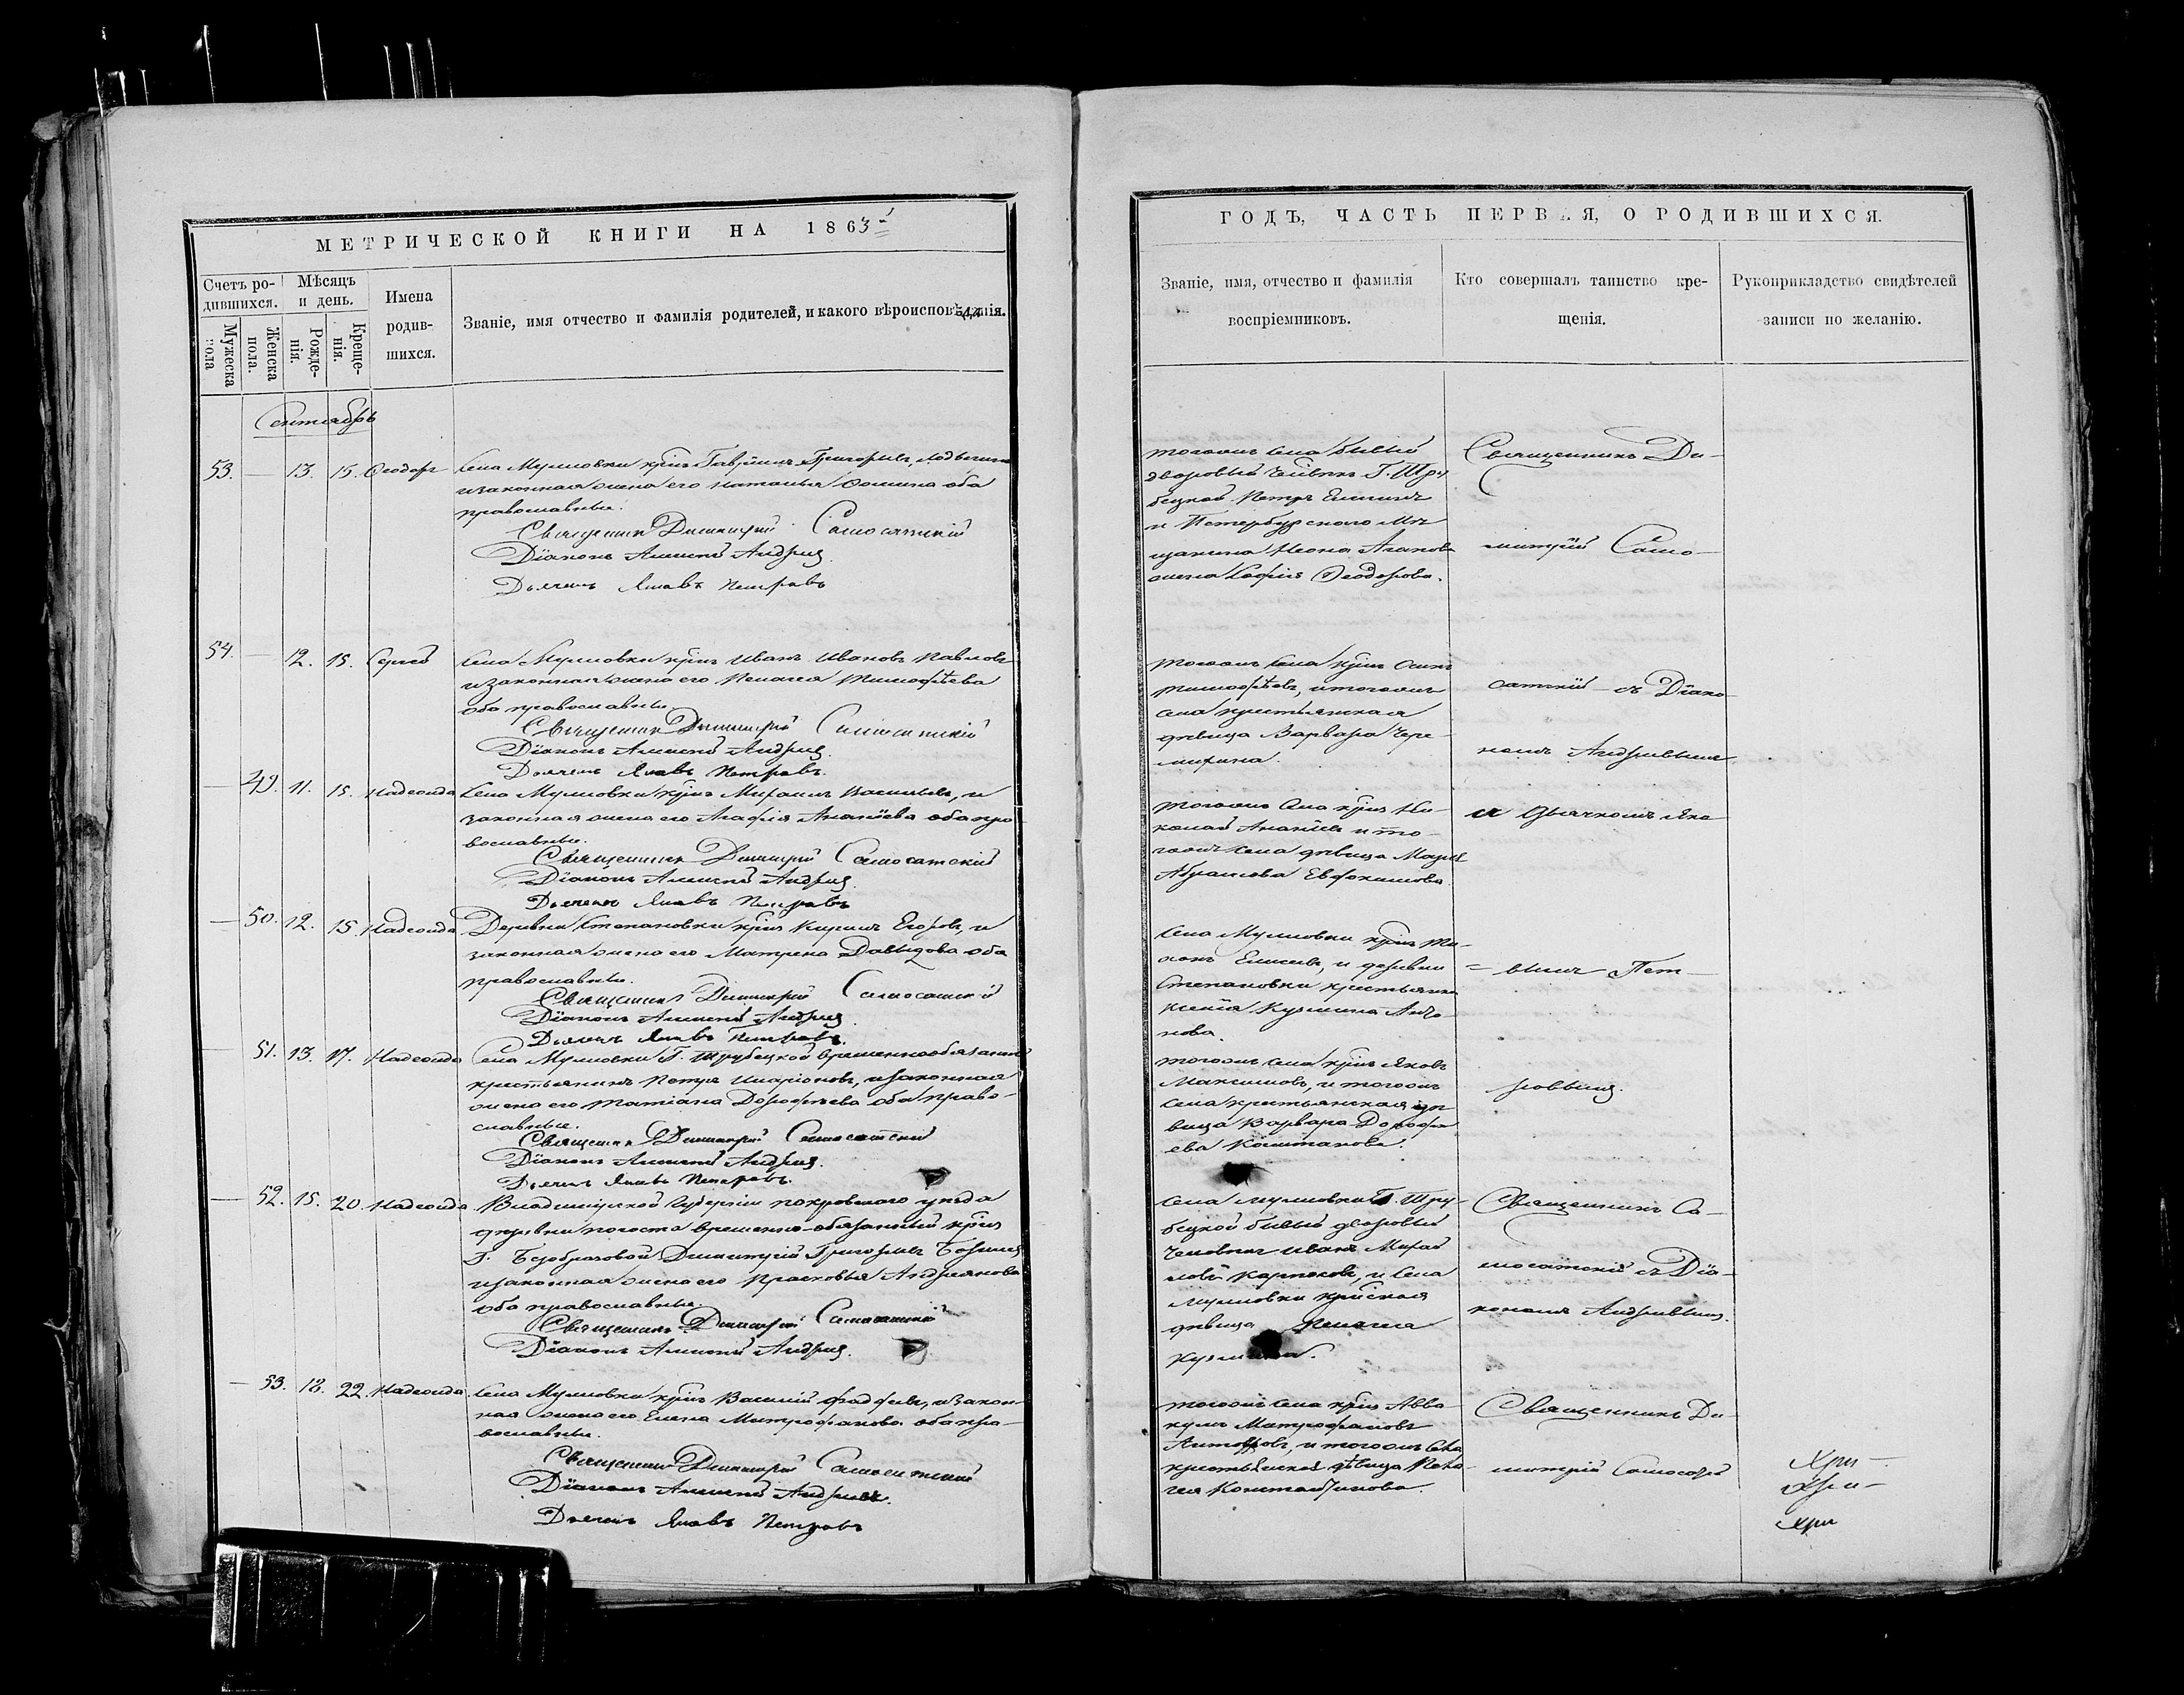 МЕТРИЧЕСКОЙ КНИГИ НА 1863
Счетъ ро-
дившихся.
Мужеска
пола
Женска
пола.
Мѣсяцъ
и день.
Рожде-
нія.
Креще-
нія.
Имена
родив-
шихся.
Званіе, имя отчество и фамилія родителей, и какого вѣроисповѣданія.
Сентябрь
53. — 13. 15. Ѳеодоръ
Села Мулловки Григорьевъ
и законная жена его Наталья оба
православные.
Священникъ Димитрій Самосатскій
Діаконъ Алексей Андреев
Дьячекъ Яковъ Петровъ
54. — 12. 15. Сергей
Села Мулловки крнъ Иванъ Ивановъ Павловъ
и законная жена его Пелагея Тимофѣева
оба православные
Священникъ Димитрій Самосатскій
Діаконъ Алексей Андреев
Дьячекъ Яковъ Петровъ.
— 49. 11. 15. Надежда
Села Мулловки крнъ Михаилъ Васильевъ, и
законная жена его Агафія Ананіева оба пра-
вославные.
Священникъ Димитрій Самосатскій
Діаконъ Алексей Андреев
Дьячекъ Яковъ Петровъ
— 50. 12. 15. Надежда
Деревни Степановки крнъ Кирилъ Егоровъ, и
законная жена его Матрена Давыдова оба
православные.
Священникъ Димитрій Самосатскій
Діаконъ Алексей Андреев
Дьячекъ Яковъ Петровъ.
— 51. 13. 17. Надежда
Села Мулловки Г. Трубецкой временнообязанный
крестьянинъ Петръ Иларіоновъ, и законная
жена его Татіана Дорофѣева оба право-
славные.
Священникъ Димитрій Самосатскій
Діаконъ Алексей Андреев.
Дьячекъ Яковъ Петровъ.
— 52. 15. 20. Надежда
Владимірской Губерніи покровскаго уѣзда
деревни погоста временно-обязанный крнъ
Г. Безобразовой Димитрій Григорьевъ
и законная жена его Прасковья Андреянова
оба православные.
Священникъ Димитрій Самосатскій
Діаконъ Алексей Андреев.
— 53. 18. 22. Надежда
Села Мулловки крнъ Василій Фаддѣевъ, и закон-
ная жена его Елена Митрофанова оба пра-
вославные.
Священникъ Димитрій Самосатскій
Діаконъ Алексей Андреев.
Дьячекъ Яковъ Петровъ
ГОДЪ, ЧАСТЬ ПЕРВАЯ, О РОДИВШИХСЯ.
Званіе, имя, отчество и фамилія
воспріемниковъ.
Кто совершалъ таинство кре-
щенія.
Рукоприкладство свидѣтелей
записи по желанію.
тогожъ села бывый
дворовый Г. Тру
бецкой Петръ
и Петербургскаго мѣ
щанина
жена Софія Ѳеодорова.
тогожъ села крнъ
Тимофѣевъ, и тогожъ
села крестьянская
дѣвица Варвара
тогожъ села крнъ Ни-
колай Ананіевъ и то-
гожъ села дѣвица Марія
Абрамова Евфокимова
села Мулловки крнъ
Елисеевъ, и деревни
Степановки крестьянка
Ксенія Кузмина
тогожъ села крнъ Яковъ
Максимовъ, и тогожъ
села крестьянская дѣ
вица Варвара Дорофѣ
ева
села Мулловки Г. Тру-
бецкой бывый дворовый
человекъ Иванъ Михай
ловъ и села
Мулловки
дѣвица Пелагея
тогожъ села крнъ Авва
кумъ Митрофановъ
и тогожъ села
крестьянская дѣвица Пела-
гея Константинова.
Священникъ Ди-
митрій Само-
сатскій съ Діако-
номъ Андреевымъ
и Дьячкомъ Яко
= вымъ Пет-
ровымъ.
Священникъ Са-
мосатскій съ Діа-
кономъ Андреевымъ.
Священникъ Ди-
митрій
Хри-
Хри-
Хри